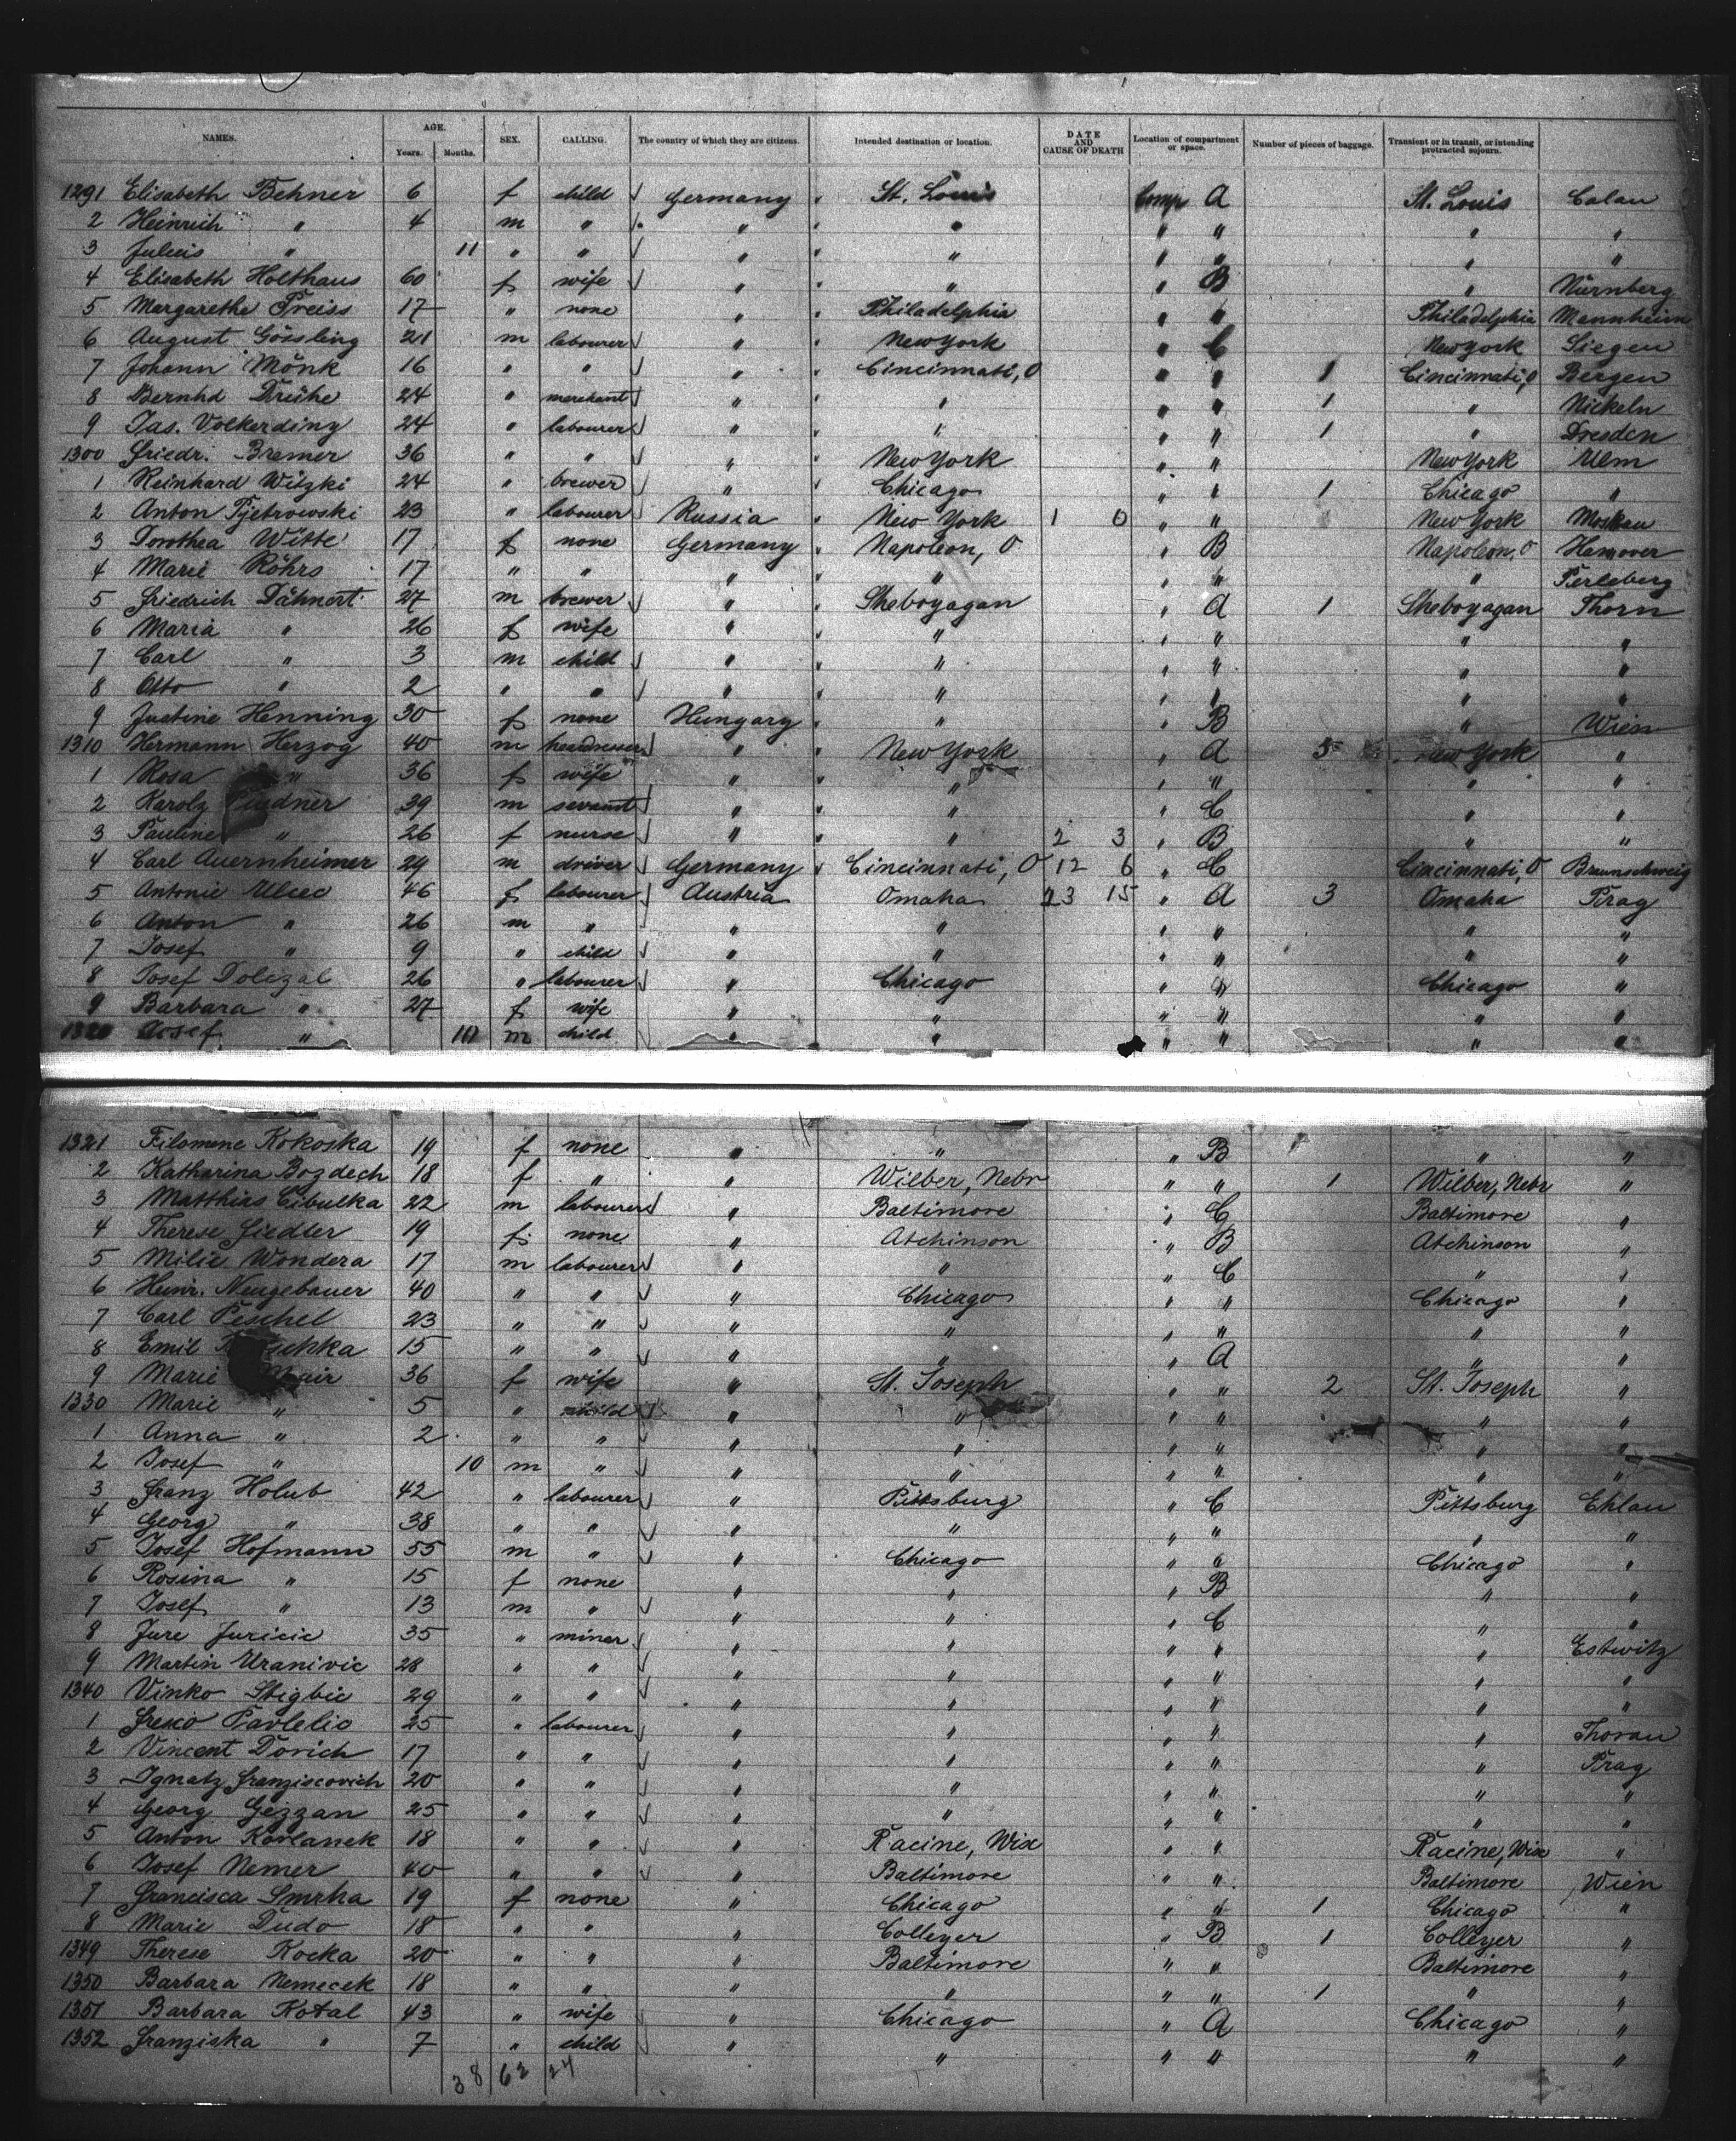 NAMES. AGE. Years. Months. SEX. CALLING. The country of which they are citizens. Intended destination or location. DATE AND CAUSE OF DEATH Location of compartment or space. Number of pieces of baggage. Transient or in transit, or intending protracted sojourn.
1291 Elisabeth Behner 6 f child Germany St. Louis Comp A St. Louis Calau
2 Heinrich " 4 m " " " " " " "
3 Julius " 11 " " " " " " " "
4 Elisabeth Holthaus 60 f wife " " " B " Nürnberg
5 Margarethe Preiss 17 " none " Philadelphia " " Philadelphia Mannheim
6 August Gössling 21 m labourer " New York " C New York Siegen
7 Johann Mönk 16 " " " Cincinnati, O " " 1 Cincinnati, O Bergen
8 Bernhd Drühe 24 " merchant " " " " 1 " Nickeln
9 Jas. Volkerding 24 " labourer " " " " 1 " Dresden
1300 Friedr. Bremer 36 " " " New York " " New York Ulm
1 Reinhard Witzki 24 " brewer " Chicago " " 1 Chicago "
2 Anton Pjetrowski 23 " labourer Russia New York 1 0 " " 1 New York Moskau
3 Dorothea Witte 17 f none Germany Napoleon, O " B Napoleon, O Hannover
4 Marie Röhrs 17 " " " " " " " Perleberg
5 Friedrich Dähnert 27 m brewer " Sheboyagan " A 1 Sheboyagan Thorn
6 Maria " 26 f wife " " " " " "
7 Carl " 3 m child " " " " " "
8 Otto " 2 " " " " " " " "
9 Justine Henning 30 f none Hungary " " B " Wien
1310 Hermann Herzog 40 m " New York " A 5 New York "
1 Rosa " 36 f wife " " " " " "
2 Karolz 39 m servant " " " C " "
3 Pauline " 26 f nurse " " 2 3 " B " "
4 Carl Auernheimer 29 m driver Germany Cincinnati, O 12 6 " C Cincinnati, O Braunschweig
5 Antonie Ulcec 46 f labourer Austria Omaha 23 15 " A 3 Omaha Prag
6 Anton " 26 m " " " " " " "
7 Josef " 9 " child " " " " " "
8 Josef Dolezal 26 " labourer " Chicago " " Chicago "
9 Barbara " 27 f wife " " " " " "
1320 Josef " 10 m child " " " " " "
1321 Filomene Kokoska 19 f none " " " B " "
2 Katharina Bozdech 18 f " " Wilber, Nebr " " 1 Wilber, Nebr "
3 Matthias Cibulka 22 m labourer " Baltimore " C Baltimore "
4 Therese Fiedler 19 f none " Atchinson " B Atchinson "
5 Milie Wondera 17 m labourer " " " C " "
6 Heinr. Neugebauer 40 " " " Chicago " " Chicago "
7 Carl Peschel 23 " " " " " " " "
8 Emil 15 " " " " " A " "
9 Marie Mair 36 f wife " St. Joseph " " 2 St. Joseph "
1330 Marie " 5 " child " " " " " "
1 Anna " 2 " " " " " " " "
2 Josef " 10 m " " " " " " "
3 Franz Holub 42 " labourer " Pittsburg " C Pittsburg Ehlau
4 Georg " 38 " " " " " " " "
5 Josef Hofmann 55 m " " Chicago " " Chicago "
6 Rosina " 15 f none " " " B " "
7 Josef " 13 m " " " " C " "
8 Jure Juricic 35 " miner " " " " " Estwitz
9 Martin Uranivic 28 " " " " " " " "
1340 Vinko Stigbic 29 " " " " " " " "
1 Fresco Pavlelic 25 " labourer " " " " " Thorau
2 Vincent Dorich 17 " " " " " " " Prag
3 Ignatz Franziscovich 20 " " " " " " " "
4 Georg Gezzan 25 " " " " " " " "
5 Anton Korlanek 18 " " " Racine, Wisc " " Racine, Wisc "
6 Josef Nemer 40 " " " Baltimore " " Baltimore Wien
7 Francisca Smrha 19 f none " Chicago " " 1 Chicago "
8 Marie Dudo 18 " " " Colleyer " B 1 Colleyer "
1349 Therese Kocka 20 " " " Baltimore " " Baltimore "
1350 Barbara Nemecek 18 " " " " " " 1 " "
1351 Barbara Kotal 43 " wife " Chicago " A Chicago "
1352 Franziska " 7 " child " " " " " "
38 62 24